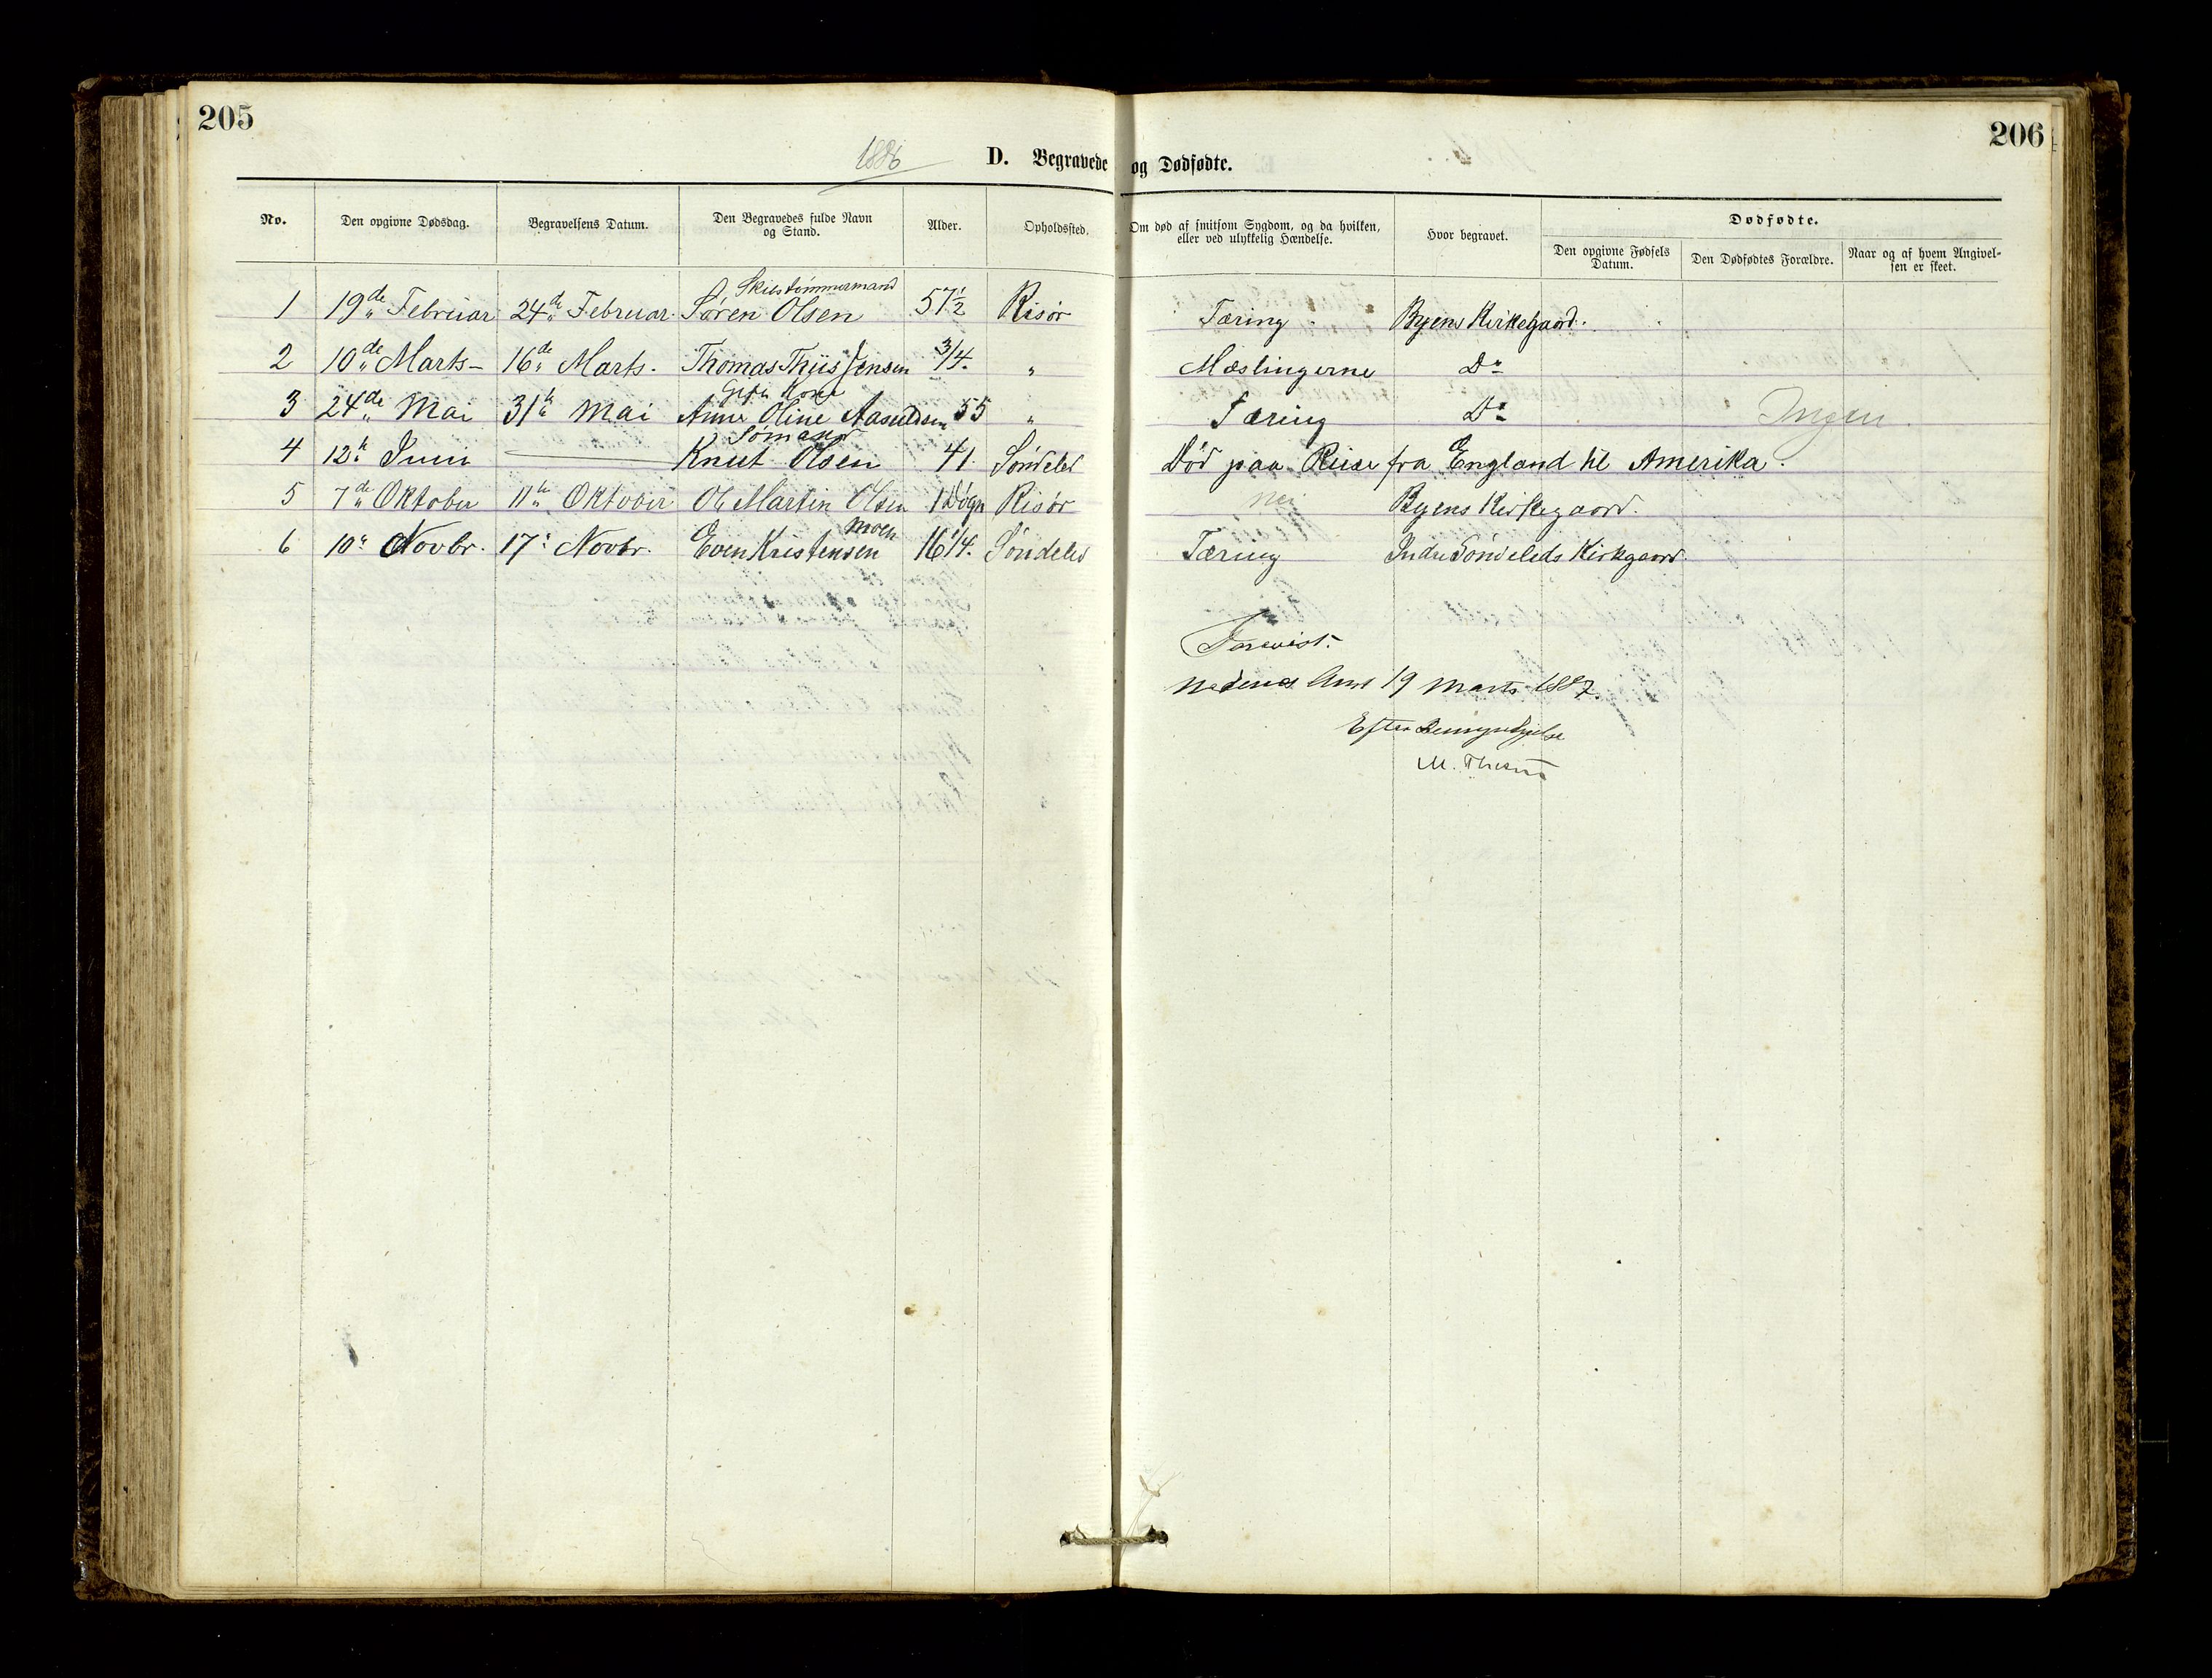 205
206
1886 D. Begravede og Dødfødte.
No. Den opgivne Dødsdag. Begravelsens Datum. Den Begravedes fulde Navn og Stand. Alder. Opholdssted. Om død af smitsom Sygdom, og da hvilken, eller ved ulykkelig Hændelse. Hvor begravet. Dødfødte. Den opgivne Fødsels Datum. Den Dødfødtes Forældre. Naar og af hvem Angivelsen er skeet.
Skibstømmermand
1 19de Februar 24de Februar. Søren Olsen 57½ Risør Tæring. Byens Kirkegaard.
2 10de Marts - 16de Marts. Thomas Thiis Jensen 3/4. " Mæslingerne Do
Gift Kone
3 24de Mai 31te Mai Anne Oline Aasuldsen 55 " Tæring Do Ingen.
Sømand
4 12te Juni — Knut Olsen 41 Søndeled Død paa Reise fra England til Amerika.
5 7de Oktober 11te Oktober Ole Martin Olsen 1 Døgn Risør Nei Byens Kirkegaard.
Moen
6 10de Novbr. 17de Novbr. Even Kristensen 16 1/4. Søndeled Tæring Indre Søndeleds Kirkegaard.
Forevist.
Nedenes Amt 19 Marts 1887.
Efter Bemyndigelse
M.